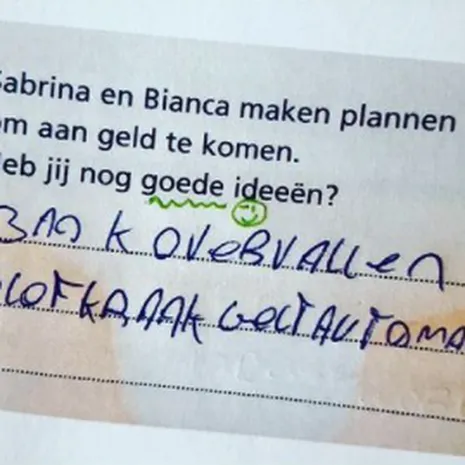 Sabrina en Bianca maken plannen
om aan geld te komen.
Heb jij nog goede ideeën?
BANK OVERVALLEN
PLOFKRAAK GELTAUTOMA